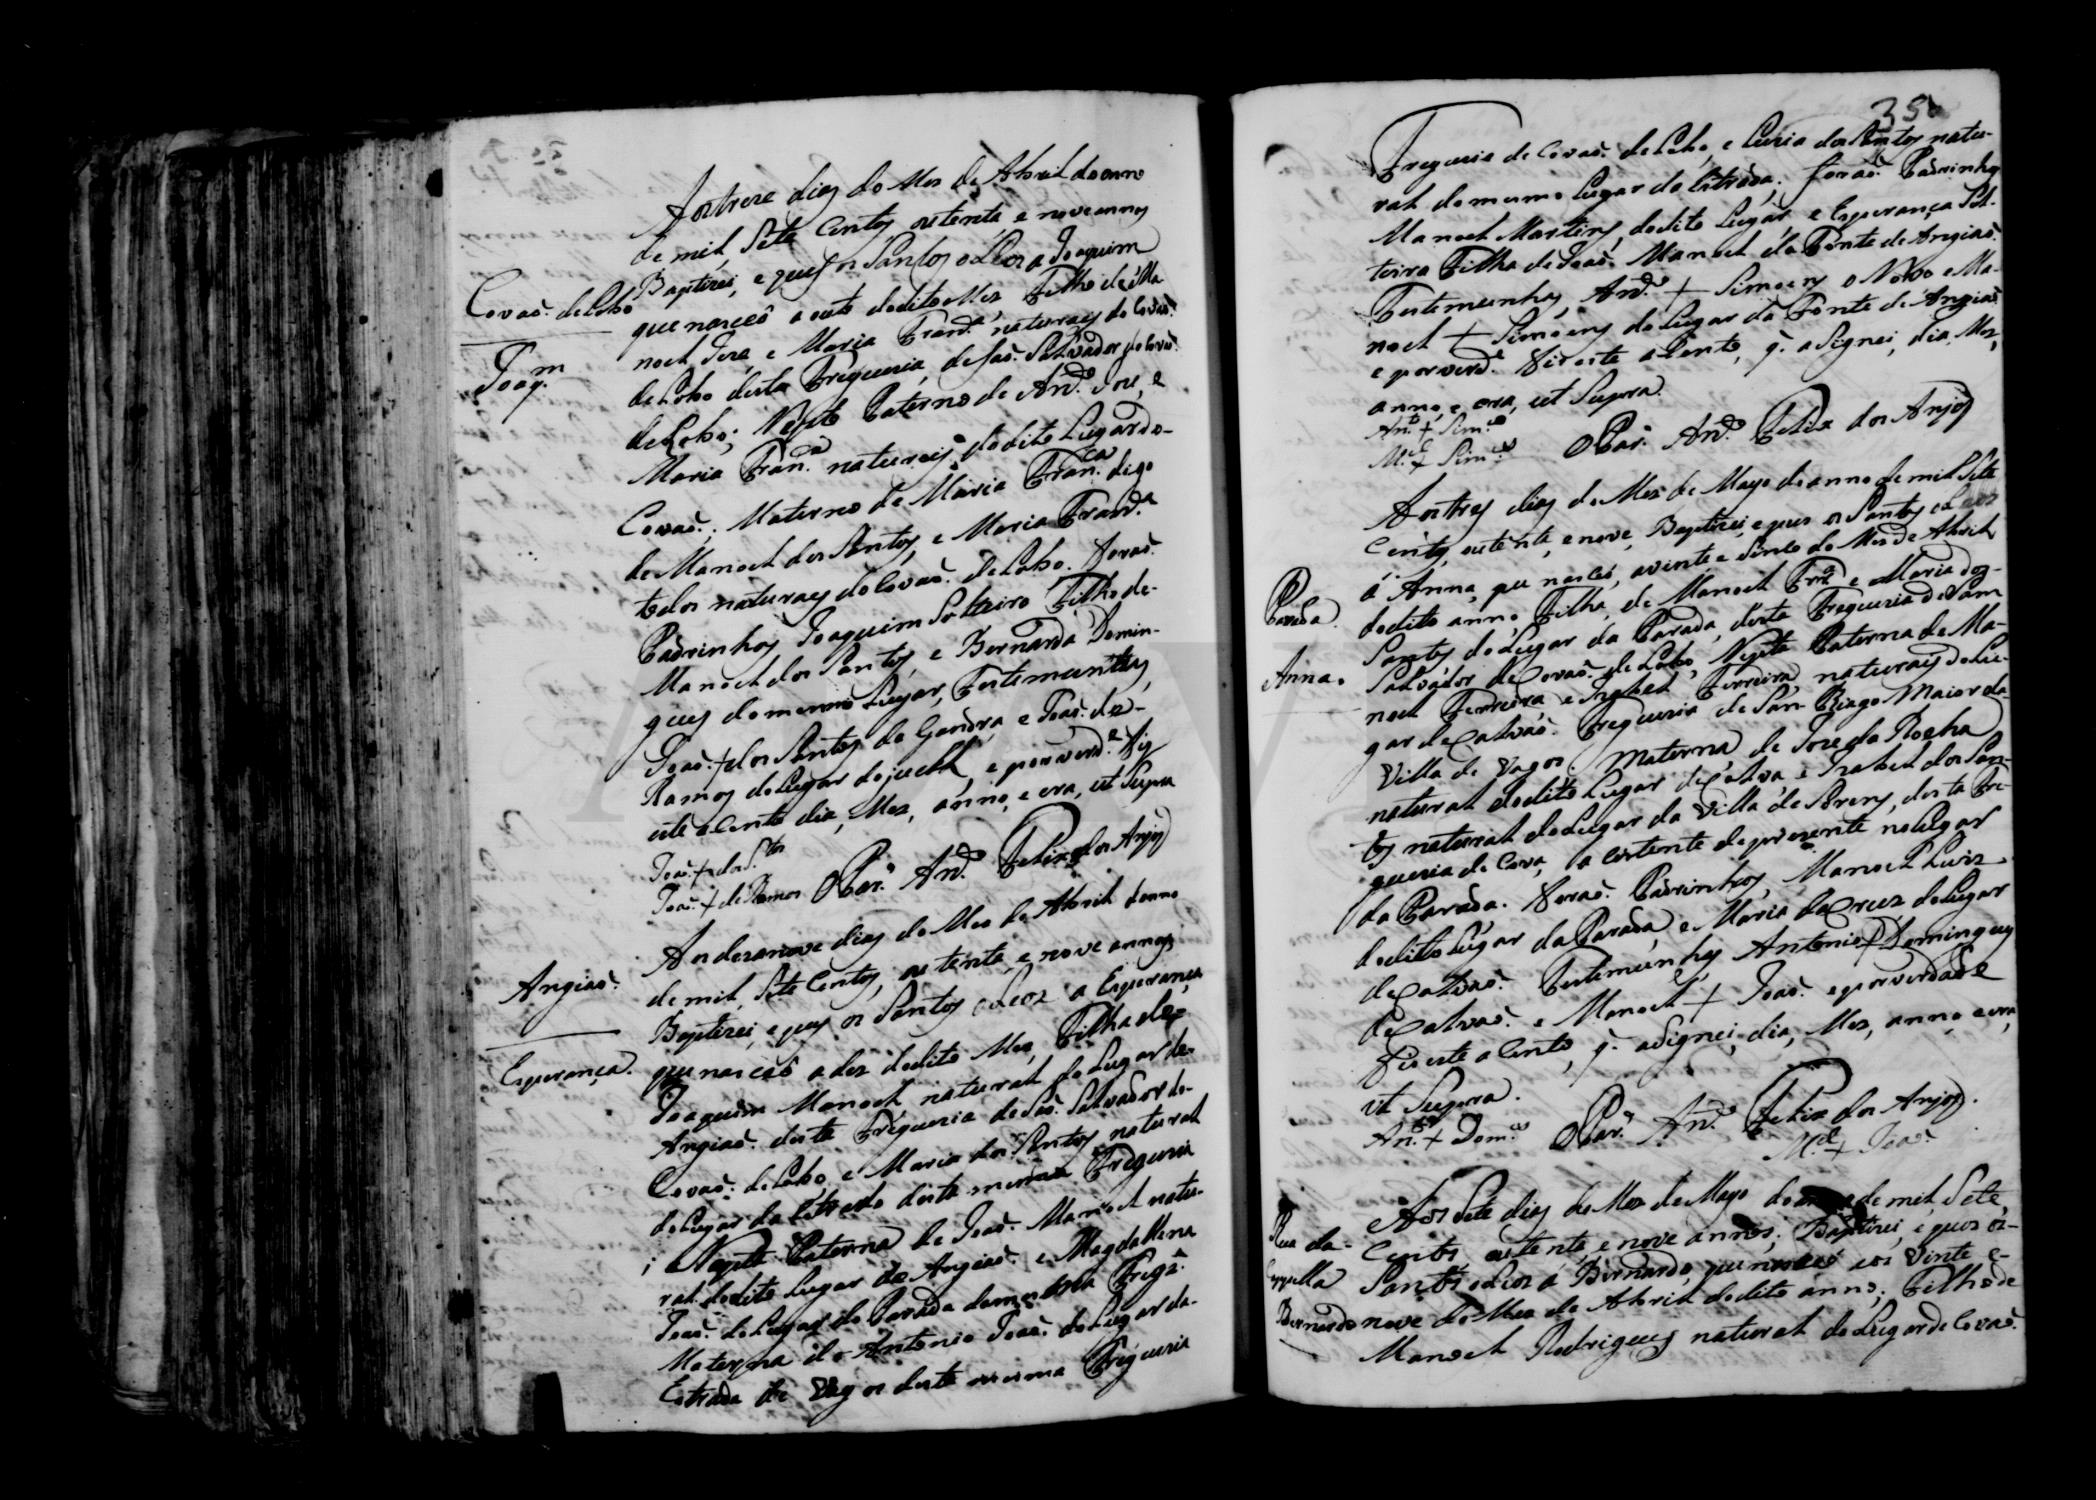 Aos treze dias do Mes de Abril do anno
de mil, Sete Centos, outenta e nove annos
Baptizei, e pus os Santos oLeos a Joaquim
Covaõ. de Lobo
que nasceo a oute do dito Mes Filho de Ma-
noel Joze, e Maria Fran.ca naturaes do Covaõ.
Joaq.m
de Lobo desta Freguezia, de Saõ. Salvador do Covaõ.
de Lobo; Neyto Paterno de An.to Joze, e
Maria Fran.ca naturais do dito Lugar do
Covaõ.; Materno de Maria Fran.ca digo
de Manoel dos Santos, e Maria Fran.ca
todos naturaes do Covaõ. de Lobo. Foraõ.
Padrinhos Joaquim Solteiro Filho de-
Manoel dos Santos, e Bernarda Domin-
gues do mesmo Lugar, Testemunhas,
Joaõ. + dos Santos da Gandra, e Joaõ. de-
Ramos do Lugar do e por verd.e fis
este acento dia, Mes, anno, e era, ut Supra
Joaõ. + dos S.tos
Joaõ. + de Ramos O Par.o An.to Felix dos Anjos
Aos dezanove dias do Mes de Abril do anno
Angiaõ.
de mil, Sete Centos, outenta, e nove annos
Baptizei, e pus os Santos oLeos a Esperança
Esperança.
que nasceo a des do dito Mes, Filha de-
Joaquim Manoel natural do Lugar de-
Angiaõ. desta Freguezia de Saõ. Salvador do-
Covaõ. de Lobo, e Maria dos Santos natural
do Lugar da Estrada desta mesma Freguezia
; Neyta Paterna de Joaõ. Manoel natu-
ral do dito Lugar de Angiaõ. e Magdallena
Joaõ. do Lugar da Parada da mesma Freg.a
Materna de Antonio Joaõ. do Lugar da-
Estrada de Vagos desta mesma Freguezia
350
Freguezia de Covaõ. de Lobo, e Luzia dos Santos natu-
ral do mesmo Lugar da Estrada; foraõ. Padrinhos
Manoel Martins, do dito Lugar e Esperança Sol-
teira Filha de Joaõ. Manoel da Fonte de Angiaõ.
Testemunhas, An.to + Simoens o Novo e Ma-
noel + Simoens do Lugar da Fonte de Angiaõ.
e por verd.e fis este acento, q. asignei, dia, Mes,
anno, e era, ut Supra.
An.to + Sim.es
M.el + Sim.es O Par.o An.to Felix dos Anjos
Aos tres dias do Mes de Mayo do anno de mil Sete
Centos, outenta, e nove, Baptizei, e pus os Santos oLeos
á Anna, que nasceo, a vinte e Sinco do Mes de Abril
Parada.
do dito anno, Filha, de Manoel Fr.a e Maria dos-
Santos do Lugar da Parada, desta Freguezia de Sam
Anna.
Salvador de Covaõ. de Lobo, Neyta Paterna de Ma-
noel Ferreira e Izabel Ferreira, naturais do Lu-
gar de Calvaõ. Freguezia de San Tiago Maior da-
Villa de Vagos, Materna de Joze da Rocha
natural do dito Lugar de Calvaõ e Izabel dos San-
tos natural do Lugar da Villa de Soreny, desta Fre-
guezia de Cova, a asistente de prezente no Lugar
da Parada. Foraõ. Padrinhos, Manoel Luiz
do dito Lugar da Parada, e Maria da Cruz do Lugar
de Calvaõ. Testemunhas Antonio + Domingues
de Calvaõ. e Manoel + Joaõ. e por verdade
fis este acento, q. asignei, dia, Mes, anno, e era,
ut Supra.
An.to + Dom.es O Par.o An.to Felix dos Anjos.
M.el + Joaõ.
Aos Sete dias do Mes de Mayo do anno de mil, Sete
Rua da-
Centos outenta, e nove annos; Baptizei, e pus os-
Cappella
Santos oLeos á Bernardo, que nasceo aos Vinte e-
Bernardo
nove do Mes de Abril do dito anno; Filho de
Manoel Rodrigues natural do Lugar de Covaõ.